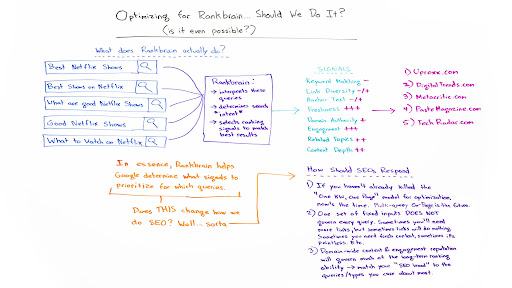 Optimizing for Rankbrain... Should We Do It?
(is it even possible?)
What does Rankbrain actually do?
Best Netflix Shows
Best Shows on Netflix
What are good Netflix Shows
Good Netflix Shows
What to Watch on Netflix
Rankbrain:
→ interprets these
queries
→ determines search
intent
→ selects ranking
signals to match
best results
SIGNALS
Keyword Matching -
Link Diversity -/+
Anchor Text -/+
Freshness +++
Domain Authority +
Engagement +++
Related Topics ++
Content Depth ++
1) Uproxx.com
2) DigitalTrends.com
3) Metacritic.com
4) PasteMagazine.com
5) Tech Radar.com
In essence, Rankbrain helps
Google determine what signals to
prioritize for which queries.
Does THIS change how we
do SEO? Well... sorta
How Should SEOs Respond
1) If you haven't already killed the
"One KW, One Page" model for optimization,
now's the time. Multi-query On-Page is the future.
2) One set of fixed inputs DOES NOT
govern every query. Sometimes you'll need
more links, but sometimes links will do nothing.
Sometimes you need fresh content, sometimes its
pointless. Etc.
3) Domain-wide content & engagement reputation
will govern much of the long-term ranking
ability → match your "SEO brand" to the
queries/types you care about most.